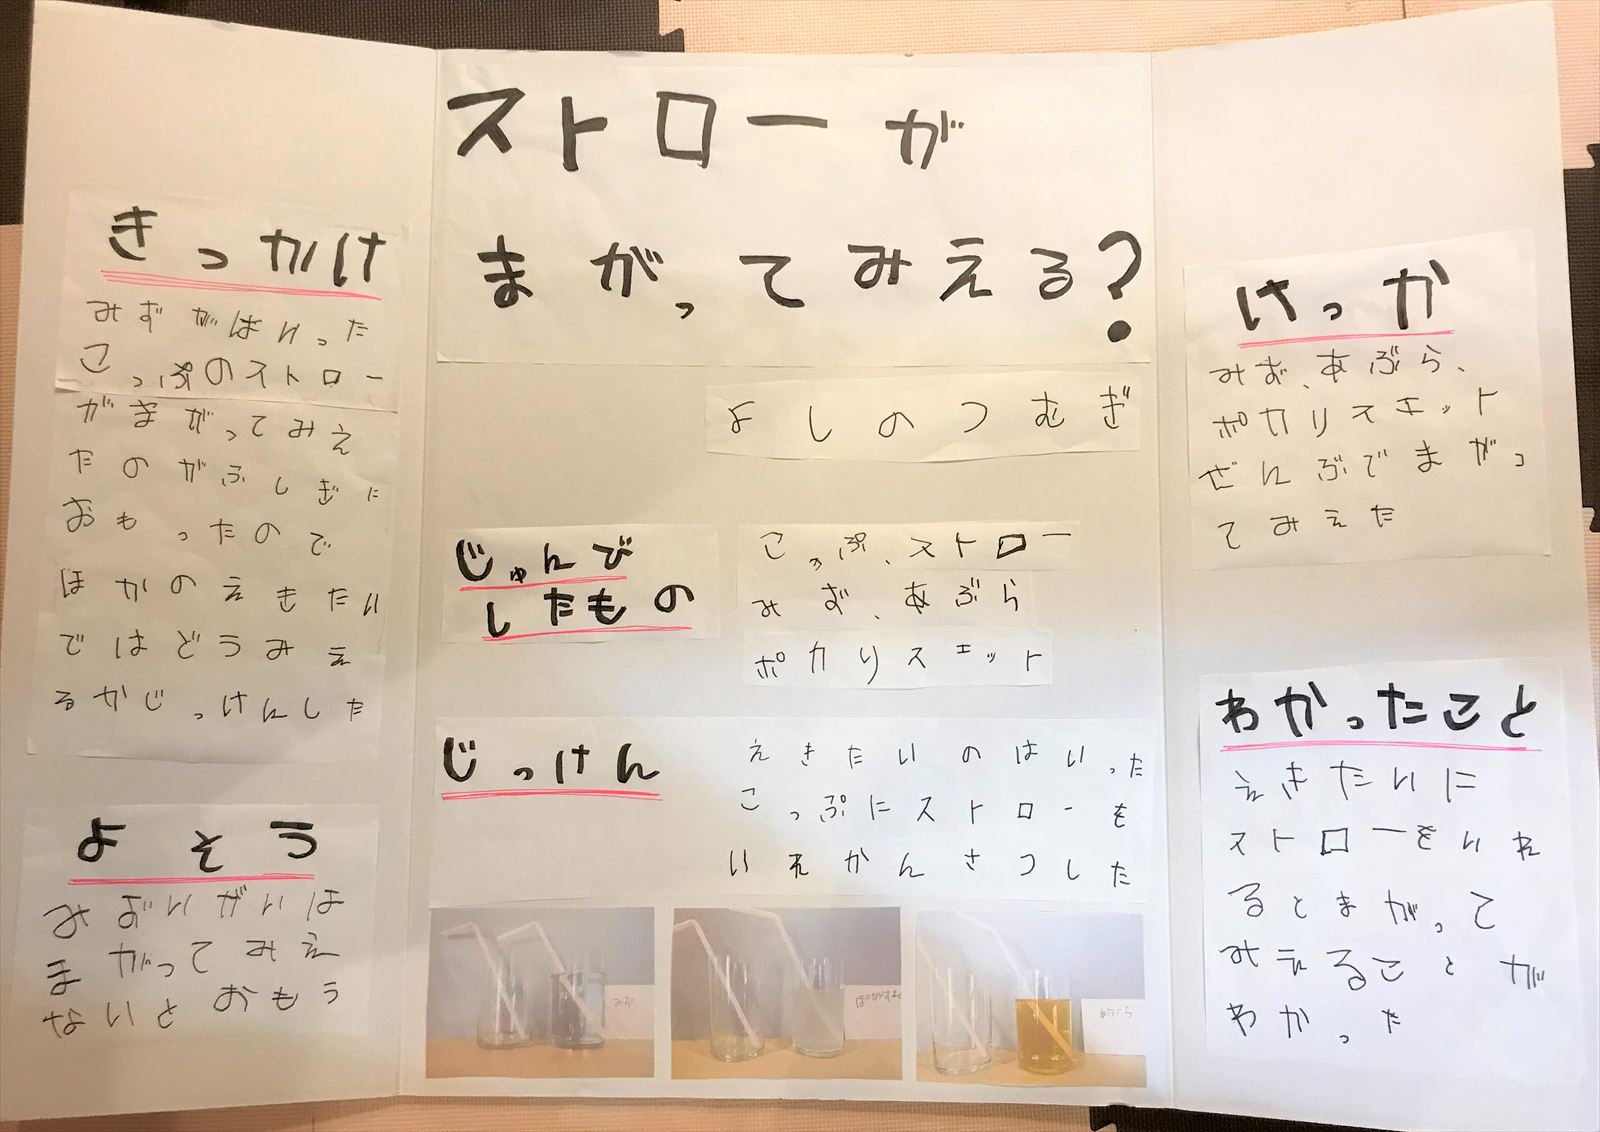 ストローが
まがってみえる?
よしのつむぎ
きっかけ
みずがはいった
こっぷのストロー
がまがってみえ
たのがふしぎに
おもったので
ほかのえきたい
ではどうみえ
るかじっけんした
よそう
みずいがいは
まがってみえ
ないとおもう
じゅんび
したもの
こっぷ、ストロー
みず、あぶら
ポカリスエット
じっけん
えきたいのはいった
こっぷにストローを
いれかんさつした
みず
あぶら
けっか
みず、あぶら、
ポカリスエット
ぜんぶでまがっ
てみえた
わかったこと
えきたいに
ストローをいれ
るとまがって
みえることが
わかった